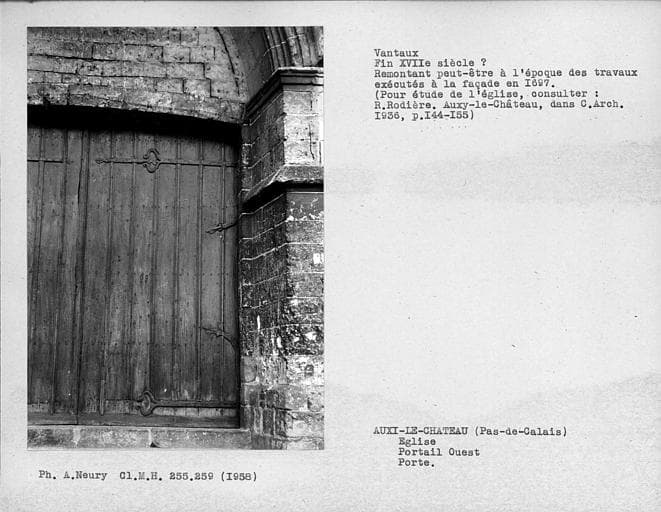 Vantaux
Fin XVIIe siècle ?
Remontant peut-être à l'époque des travaux
exécutés à la façade en I697.
(Pour étude de l'église, consulter :
R.Rodière. Auxy-le-Château, dans C.Arch.
I936, p.I44-I55)
AUXI-LE-CHATEAU (Pas-de-Calais)
Eglise
Portail Ouest
Porte.
Ph. A.Neury Cl.M.H. 255.259 (I958)